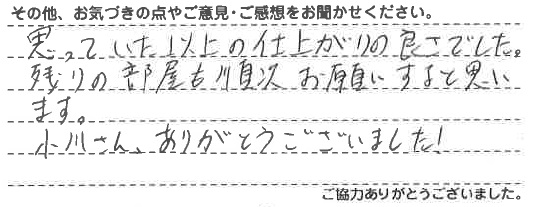 その他、お気づきの点やご意見・ご感想をお聞かせください。
思っていた以上の仕上がりの良さでした。
残りの部屋も順次お願いすると思い
ます。
小川さん、ありがとうございました!
ご協力ありがとうございました。